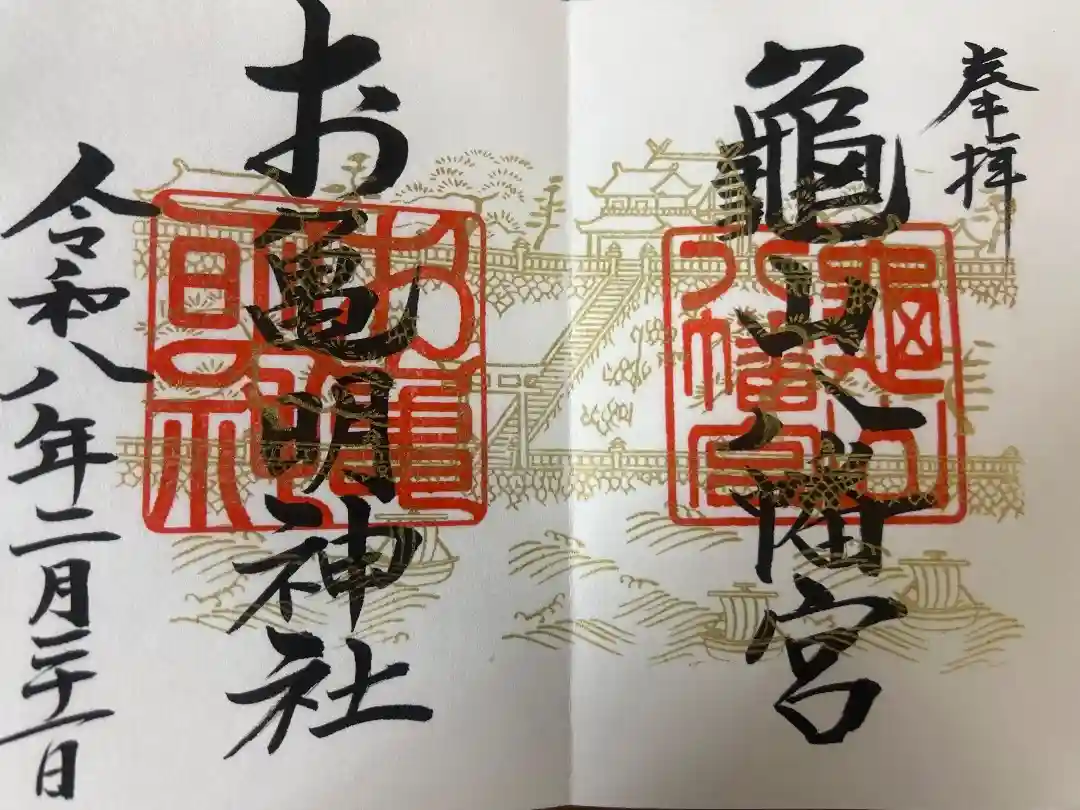 奉拝
龜山八幡宮
龜山八幡宮
お亀明神社
お亀明神社
令和八年二月二十一日